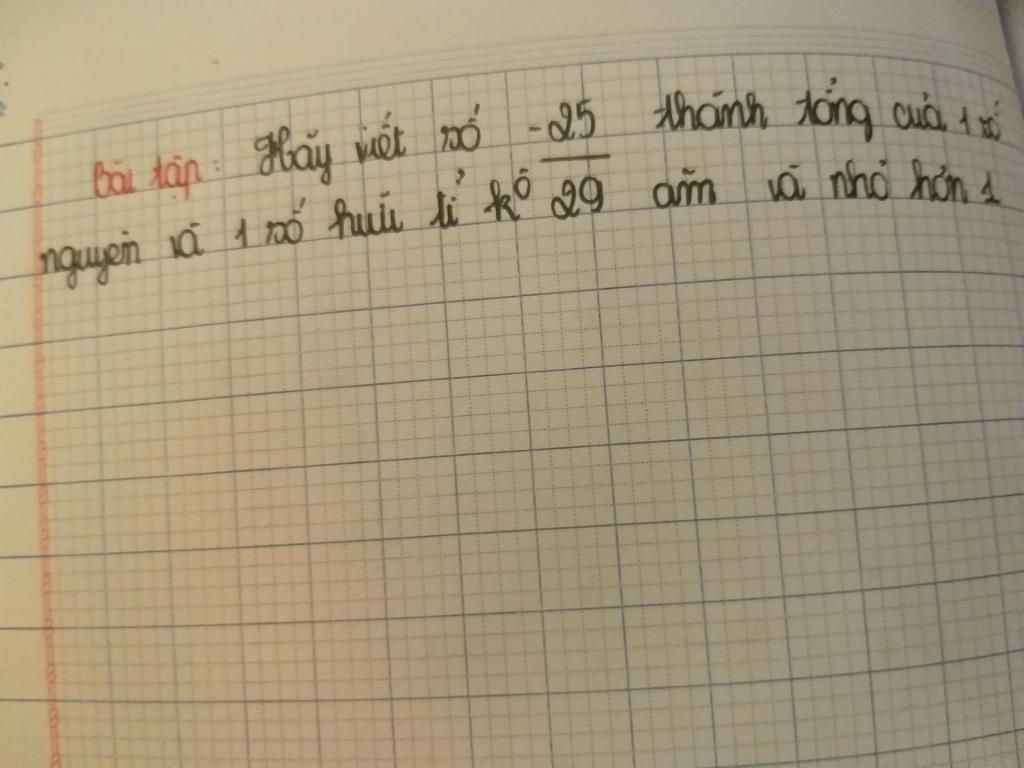 Bài tập: Hãy viết số -25/29 thành tổng của 1 số
nguyên và 1 số hữu tỉ kô âm và nhỏ hơn 1